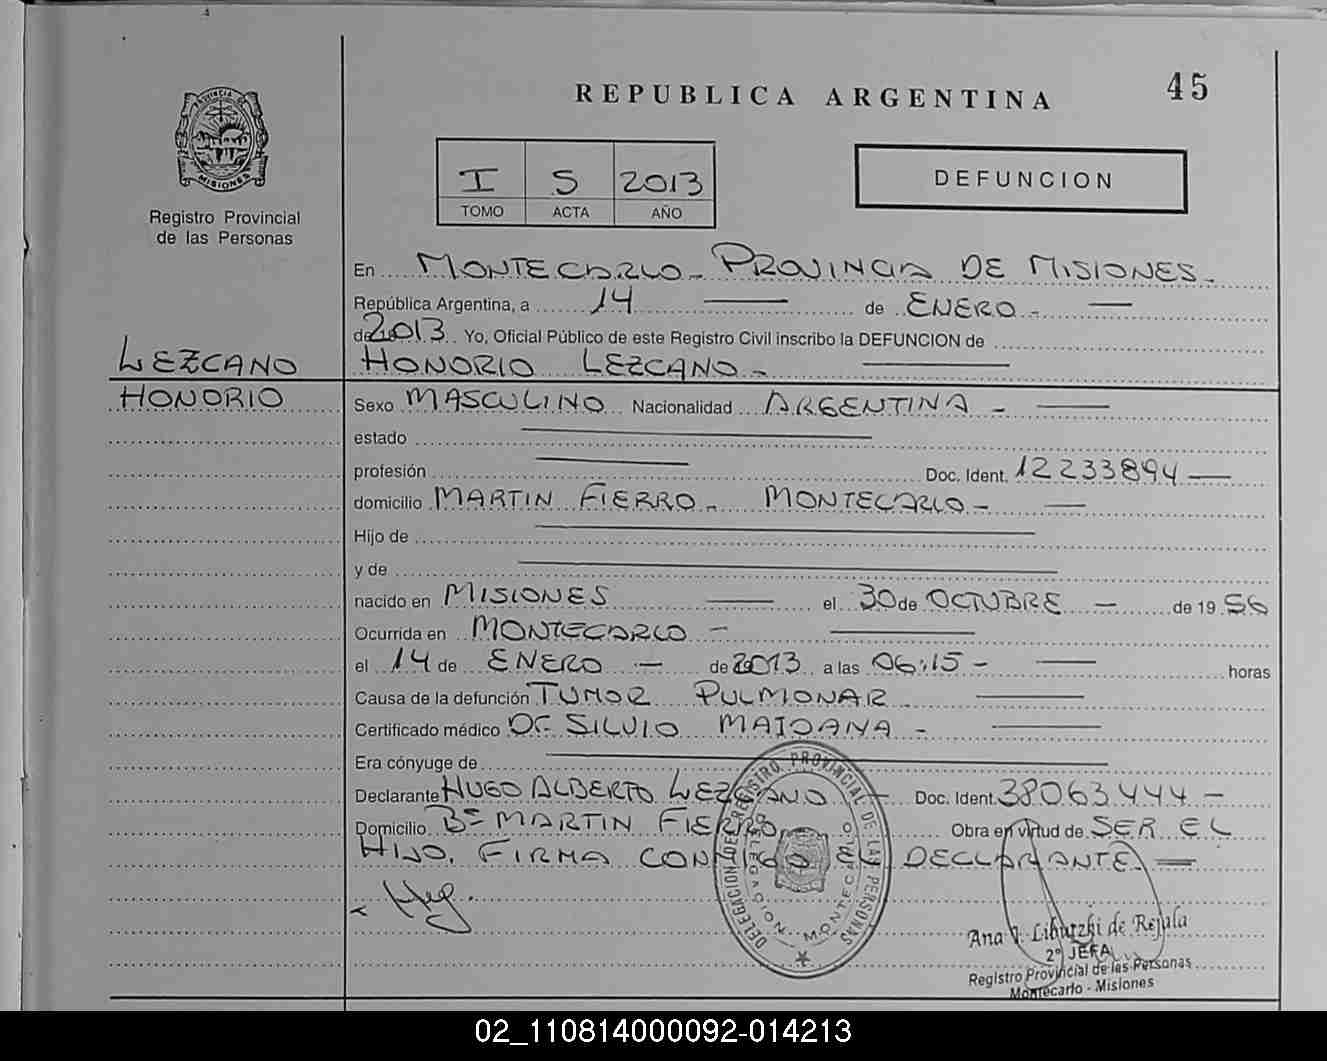 45
REPUBLICA ARGENTINA
PROVINCIA DE
MISIONES
Registro Provincial
de las Personas
I 5 2013
TOMO ACTA AÑO
DEFUNCION
En MONTECARLO - PROVINCIA DE MISIONES -
República Argentina, a 14 — de ENERO - —
de 2013 Yo, Oficial Público de este Registro Civil inscribo la DEFUNCION de
LEZCANO HONORIO LEZCANO - —
HONORIO Sexo MASCULINO Nacionalidad ARGENTINA - —
estado —
profesión — Doc. Ident. 12233894 —
domicilio MARTIN FIERRO - MONTECARLO - —
Hijo de —
y de —
nacido en MISIONES — el 30 de OCTUBRE - de 19 56
Ocurrida en MONTECARLO - —
el 14 de ENERO - de 2013 a las 06:15 - — horas
Causa de la defunción TUMOR PULMONAR —
Certificado médico Dr. SILVIO MAIDANA - —
Era cónyuge de —
Declarante HUGO ALBERTO LEZCANO - Doc. Ident. 38063444 -
Domicilio Bº MARTIN FIERRO Obra en virtud de SER EL
HIJO. FIRMA CONMIGO EL DECLARANTE —
DELEGACION DEL REGISTRO PROVINCIAL DE LAS PERSONAS
DELEGACION MONTECARLO
Ana de Rejala
2º JEFA
Registro Provincial de las Personas
Montecarlo - Misiones
02_110814000092-014213